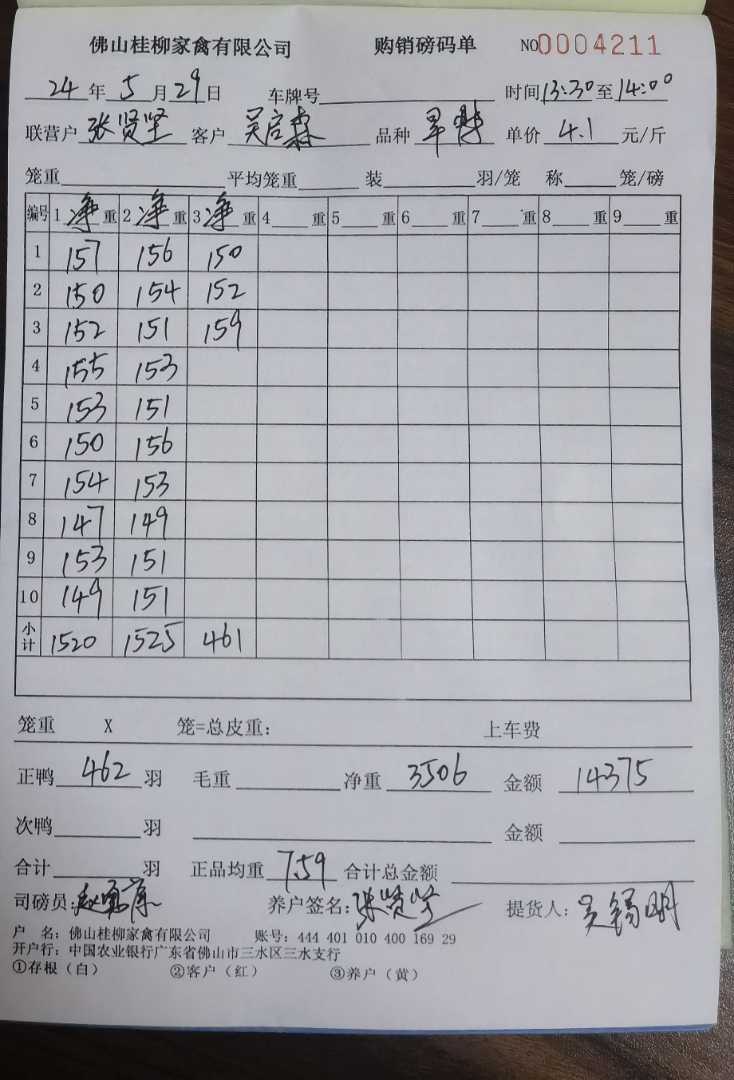 佛山桂柳家禽有限公司 购销磅码单 NO0004211
24年5月29日 车牌号 时间13:30至14:00
联营户张贤坚 客户吴启森 品种 单价4.1元/斤
笼重 平均笼重 装 羽/笼 称 笼/磅
编号 1净重 2净重 3净重 4 重 5 重 6 重 7 重 8 重 9 重
1 157 156 150
2 150 154 152
3 152 151 159
4 155 153
5 153 151
6 150 156
7 154 153
8 147 149
9 153 151
10 149 151
小计 1520 1525 461
笼重 X 笼=总皮重: 上车费
正鸭462羽 毛重 净重3506 金额14375
次鸭 羽 金额
合计 羽 正品均重7.59 合计总金额
司磅员: 养户签名:张贤坚 提货人:吴锡明
户 名: 佛山桂柳家禽有限公司 账号: 444 401 010 400 169 29
开户行: 中国农业银行广东省佛山市三水区三水支行
①存根(白) ②客户(红) ③养户(黄)